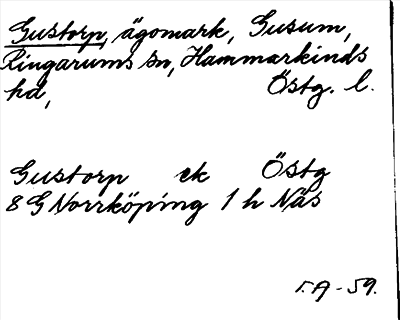 Gustorp, ägomark, Gusum,
Ringarums sn, Hammarkinds
hd, Östg. l.
Gustorp ek Östg
8 G Norrköping 1 h Näs
r.A - 59.